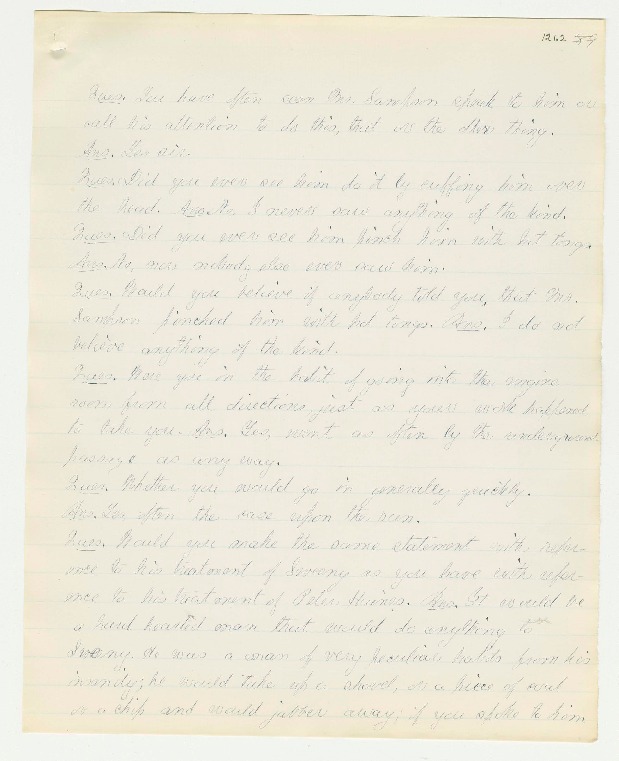 1262
Ques. You have often seen Mr. Sampson speak to him or
call his attention to do this, that or the other thing.
Ans. Yes sir.
Ques. Did you ever see him do it by cuffing him over
the head. Ans. No I never saw anything of the kind.
Ques. Did you ever see him pinch him with hot tongs.
Ans. No, nor nobody else ever saw him.
Ques. Would you believe if anybody told you, that Mr.
Sampson pinched him with hot tongs. Ans. I do not
believe anything of the kind.
Ques. Were you in the habit of going into the engine
room from all directions, just as your work happened
to take you. Ans. Yes, went as often by the underground
passage as any way.
Ques. Whether you would go in unusually quickly.
Ans. Yes, often the case upon the run.
Ques. Would you make the same statement with refer-
ence to his treatment of Sweeny as you have with refer-
ence to his treatment of Peter . Ans. It would be
a hard hearted man that would do anything to
Sweeny. He was a man of very peculiar habits from his
insanity; he would take up a shovel, or a piece of coal
or a chip and would jabber away; if you spoke to him